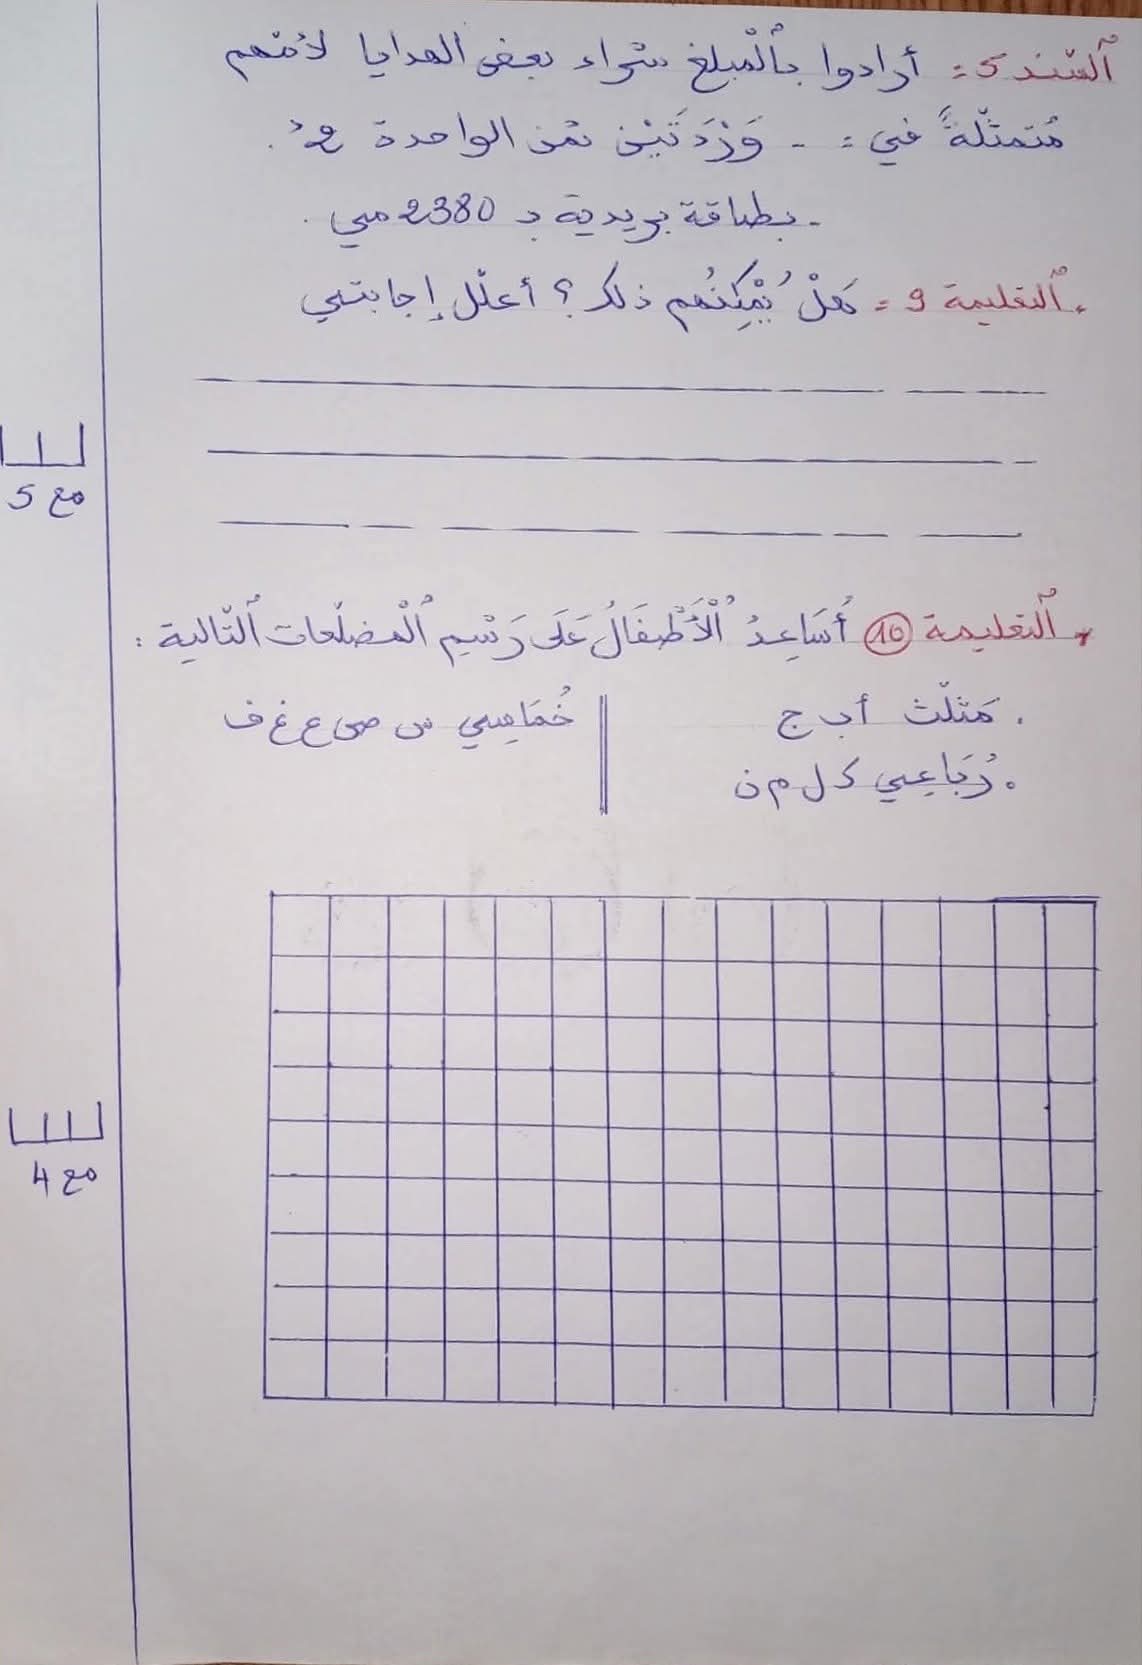 السّند 5 = أرادوا بٱلْمبلغ شراء بعض الهدايا لأمّهم
مُتمثّلةً في : - وَرْدَتَيْن ثمن الواحدة 2د.
- بطاقة بريدية بـ 2380 مي.
ٱلتعليمة 9 = هَلْ يُمْكِنُهُم ذلك؟ أعلّل إجابتي
مع 5
ٱلتعليمة 10 أُسَاعِدُ ٱلْأَطْفَالُ عَلَى رَسْمِ ٱلْمضلّعات ٱلتّالية :
. مَثلّث أ ب ج
خُمَاسِي س ص ع غ ف
. رُبَاعِي ك ل م ن
مع 4